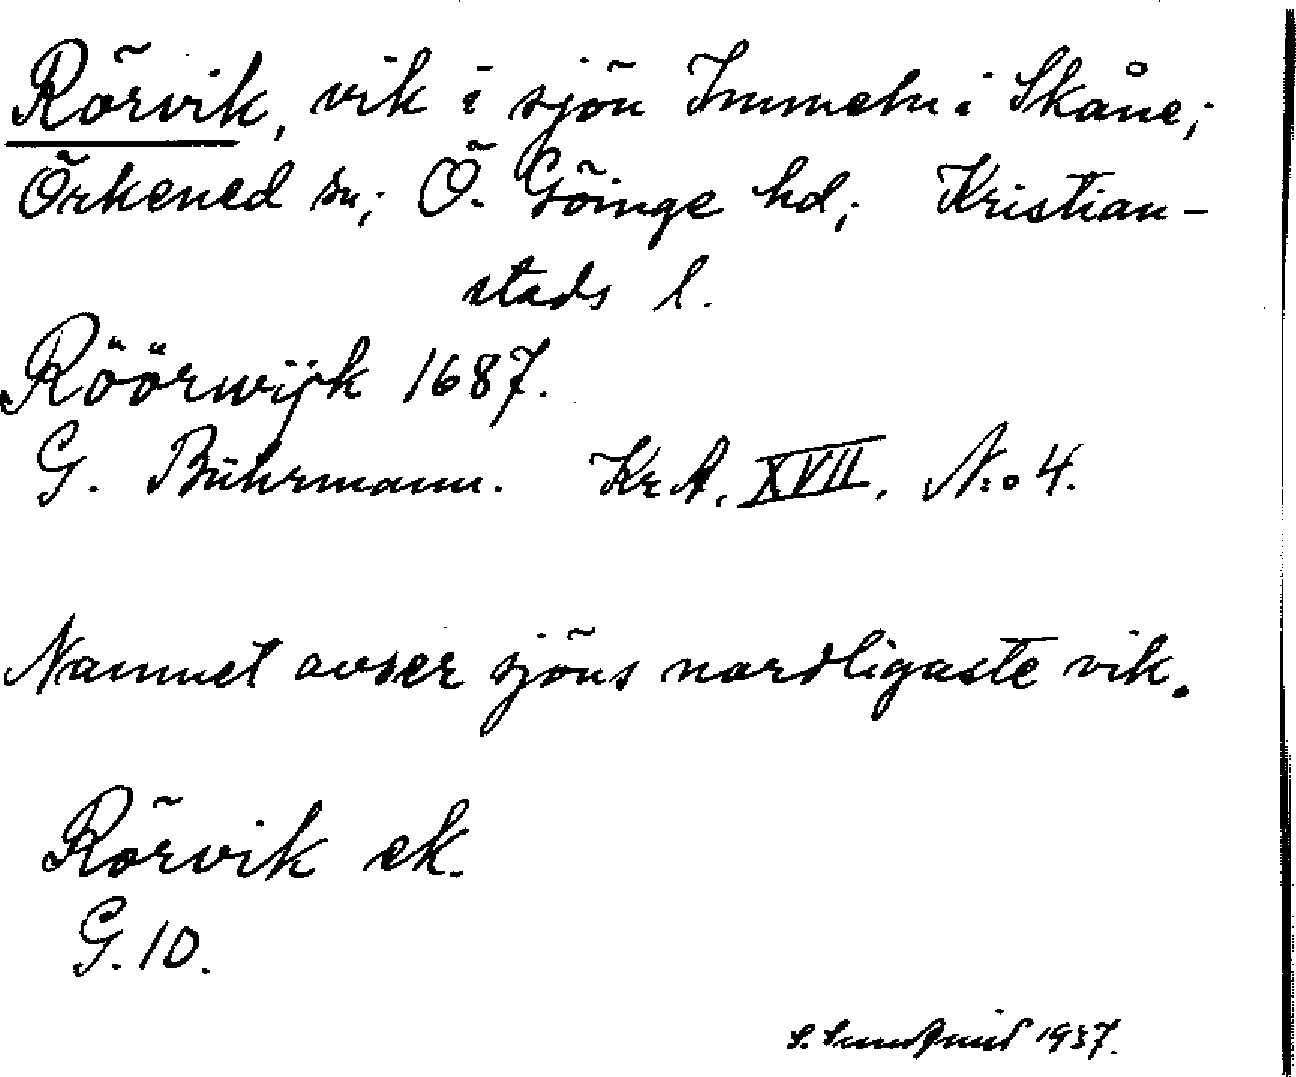 Rörvik, vik i sjön Immeln i Skåne;
Örkened sn; Ö. Göinge hd; Kristian-
stads l.
Röörwijk 1687.
G. Buhrmann. Kr A. XVII. N:o 4.
Namnet avser sjöns nordligaste vik.
Rörvik ek.
G. 10.
S. Sundquist 1937.